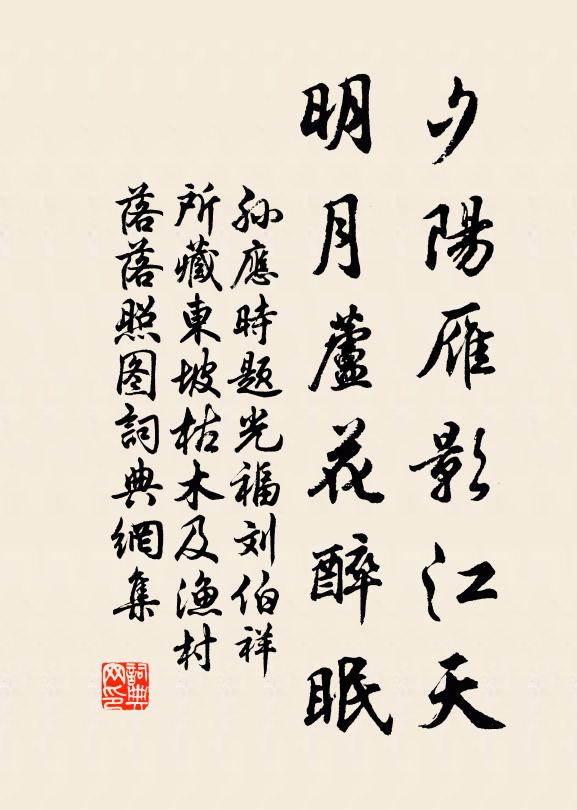 夕陽雁影江天
明月蘆花醉眠
孙應時题光福刘伯祥
所藏東坡枯木及渔村
落落照图詞典網集
詞典
网印